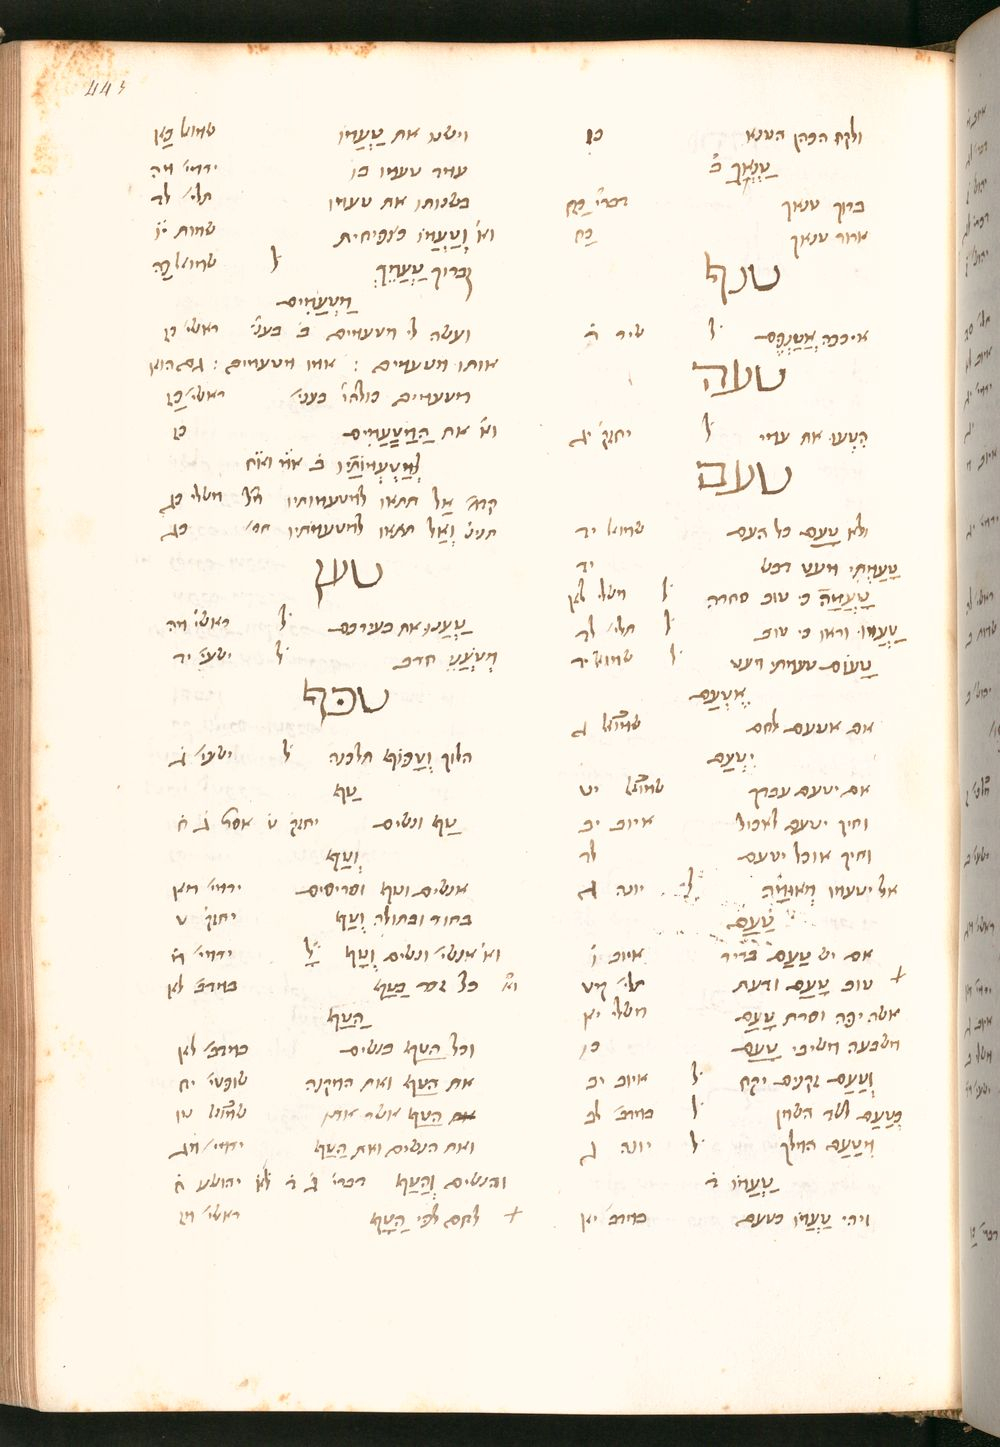 443
ולקח הכהן הטנא כו
טַנְאֲךָ ב֗
ברוך טנאך דברי֗ כח
ארור טנאך כח
טנף
איככה אֲטַנְּפֵם ל֗ שיר ה֗
טעה
הִטְעוּ את עמי ל֗ יחזק֗ יג
טעם
ולא טָעַם כל העם שמואל יד
טָעַמְתִּי מעט דבש יד
טָעֲמָה כי טוב סחרה ל֗ משלי לא
טַעֲמוּ וראו כי טוב ל֗ תלי֗ לד
טָעוֹם טעמתי מעט ל֗ שמואל יד
אֶטְעַם
אם אטעם לחם שמואל ג
יִטְעַם
אם יטעם עבדך שמואל יט
וחיך יטעם לאכול איוב יב
וחיך אוכל יטעם לד
אל יטעמו מאומה ל֗ יונה ג
טַעַם
אם יש טַעַם בריר איוב ו֗
טוב טַעַם ודעת תלי֗ קיט
אשה יפה וסרת טָעַם משלי יא
משבעה משיבי טָעַם כו
וְטַעַם זקנים יקח ל֗ איוב יב
כְּטַעַם לשד השמן ל֗ במדב֗ יא
מִטַּעַם המלך ל֗ יונה ג
טַעְמוֹ ד֗
ויהי טַעְמוֹ כטעם במדב֗ יא
וישנו את טַעְמוֹ שמואל כא
עמד טעמו בו ירמי֗ מח
בשנותו את טעמו תלי֗ לד
וא֗ וְטַעְמוֹ כצפיחית שמות י֗ו
וברוך טַעְמֵךְ ל֗ שמואל כה
מַטְעַמִּים
ועשה לי מטעמים ב֗ בעני֗ ראשי֗ כז
אותו מטעמים : אמו מטעמים : גם הוא
מטעמים כולהו֗ בעני֗ ראשי֗ כז
וא֗ את הַמַּטְעַמִּים כז
לְמַטְעַמּוֹתָיו ב֗
קדמ֗ אל תתאו למטעמותיו משלי כג
תנינ֗ וְאַל תתאו למטעמתיו כג
טען
טַעֲנוּ את בעירכם ל֗ ראשי֗ מה
מְטֹעֲנֵי חרב ל֗ ישעי֗ יד
טפף
הלוך וְטָפוֹף תלכנה ל֗ ישעי֗ ג
טַף
טַף ונשים יחזק֗ ט֗ אסתר ג֗ ח֗
וְטַף
אנשים וטף וסריסים ירמי֗ מא
בחור ובתולה וְטַף יחזק֗ ט
וא֗ אנשי֗ ונשים וָטַף ל֗ ירמי֗ מ֗
כל זכר בַּטַּף במדב֗ לא
הַטַּף
וכל הַטַּף בנשים במדב֗ לא
את הַטַּף ואת המקנה שופטי֗ יח
הַטַּף אשר אתו שמואל טו
ואת הנשים ואת הַטַּף ירמי֗ מג
והנשים וְהַטַּף דברי֗ ג֗ לא יהושע ח֗
לחם לפי הַטָּף ראשי֗ מז